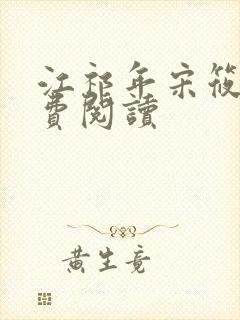 江祁年宋筱
費閱讀
黄生竟